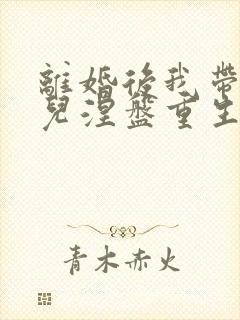 離婚後我帶
兒涅盤重生
青木赤火